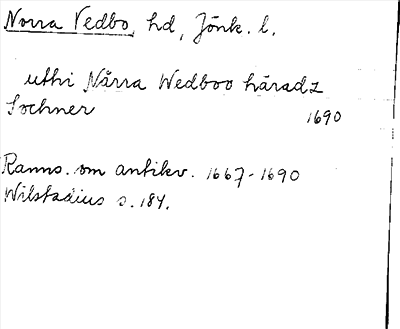 Norra Vedbo, hd, Jönk. l.
uthi Nårra Wedboo häradz
Sochner 1690
Ranns. om antikv. 1667-1690
Wilstadius s. 184.